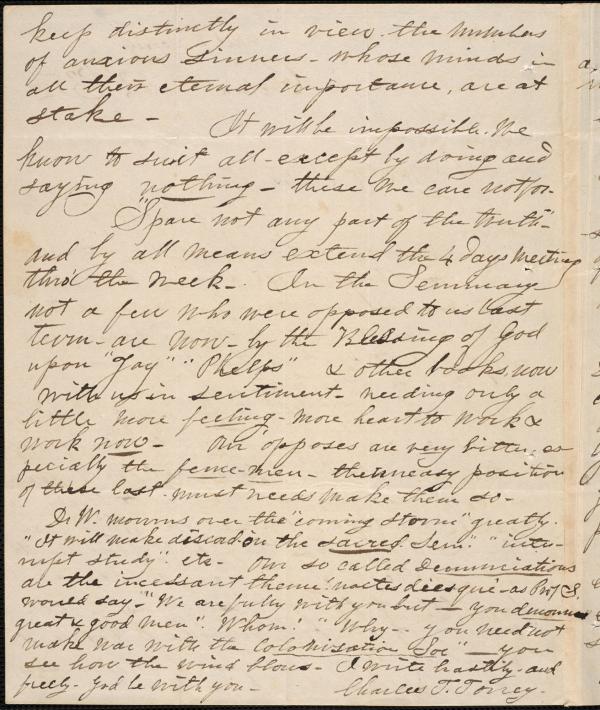 keep distinctly in view the numbers
of anxious sinners - whose minds in
all their eternal importance, are at
stake - It will be impossible. We
know to suit all - except by doing and
saying nothing - these we care not for -
"Spare not any part of the truth" -
and by all means extend the 4 days meeting
thro' the week - In the Seminary
not a few who were opposed to us last
term - are now - by the Blessing of God
upon "Jay" "Phelps" & other books, now
with us in sentiment - needing only a
little more feeling - more heart to work &
work now - Our opposes are very bitter, es-
pecially the fence-men - the uneasy position
of these last must needs make them so -
Dr W. mourns over the "coming storm" greatly.
"It will make discord in the sacred Sem." "inter-
rupt study" &c - Our so called Denunciations
are the incessant theme! as Prof S.
would say - "We are fully with you but - you denounce
great & good men"! Whom? "Why - you need not
make war with the Colonization Soc" - you
see how the wind blows - I write hastily - and
freely - God be with you -
Charles T. Torrey -